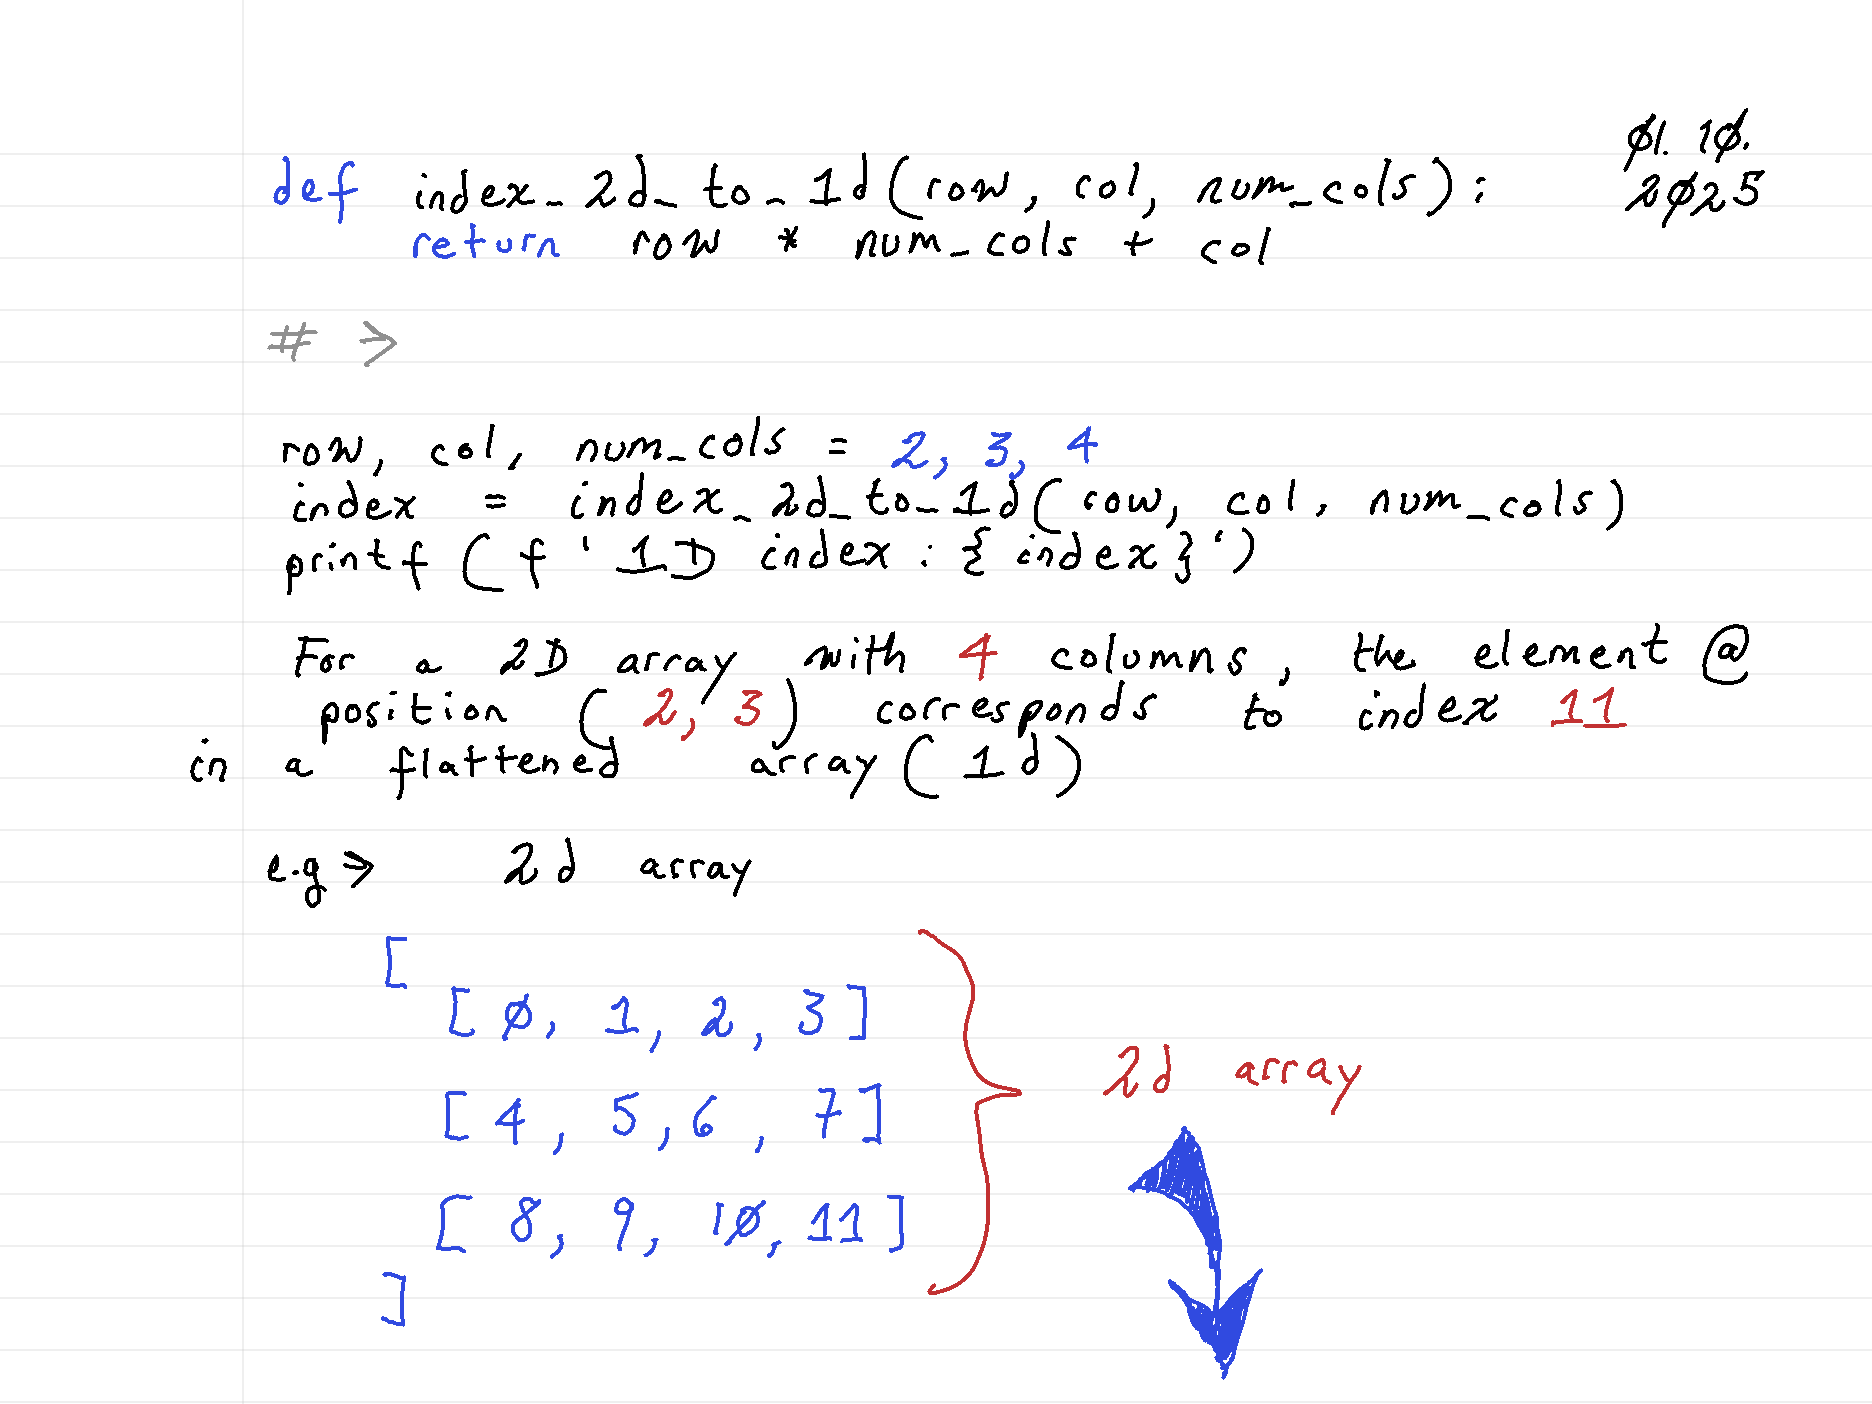 01. 10.
2025
def index_2d_to_1d(row, col, num_cols):
return row * num_cols + col
# →
row, col, num_cols = 2, 3, 4
index = index_2d_to_1d(row, col, num_cols)
printf (f '1D index: {index}')
For a 2D array with 4 columns, the element @
position (2, 3) corresponds to index 11
in a flattened array (1d)
e.g → 2d array
[
[ 0, 1, 2, 3 ]
[ 4, 5, 6, 7 ]
2d array
[ 8, 9, 10, 11 ]
]